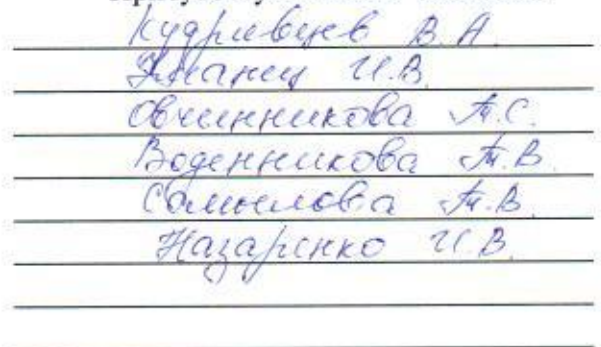 Кудрявцев В.А.
И.В.
Овчинникова Т.С.
Воденникова Т.В.
Самылова Т.В.
Назаренко И.В.